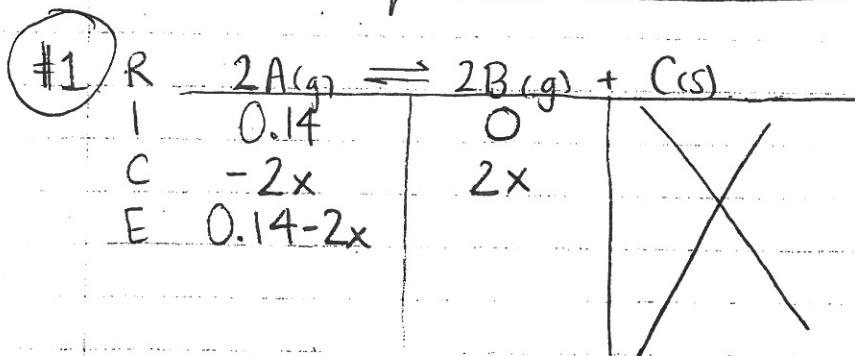 #1 R 2A(g) ⇌ 2B(g) + C(s)
I 0.14 0
C -2x 2x
E 0.14-2x